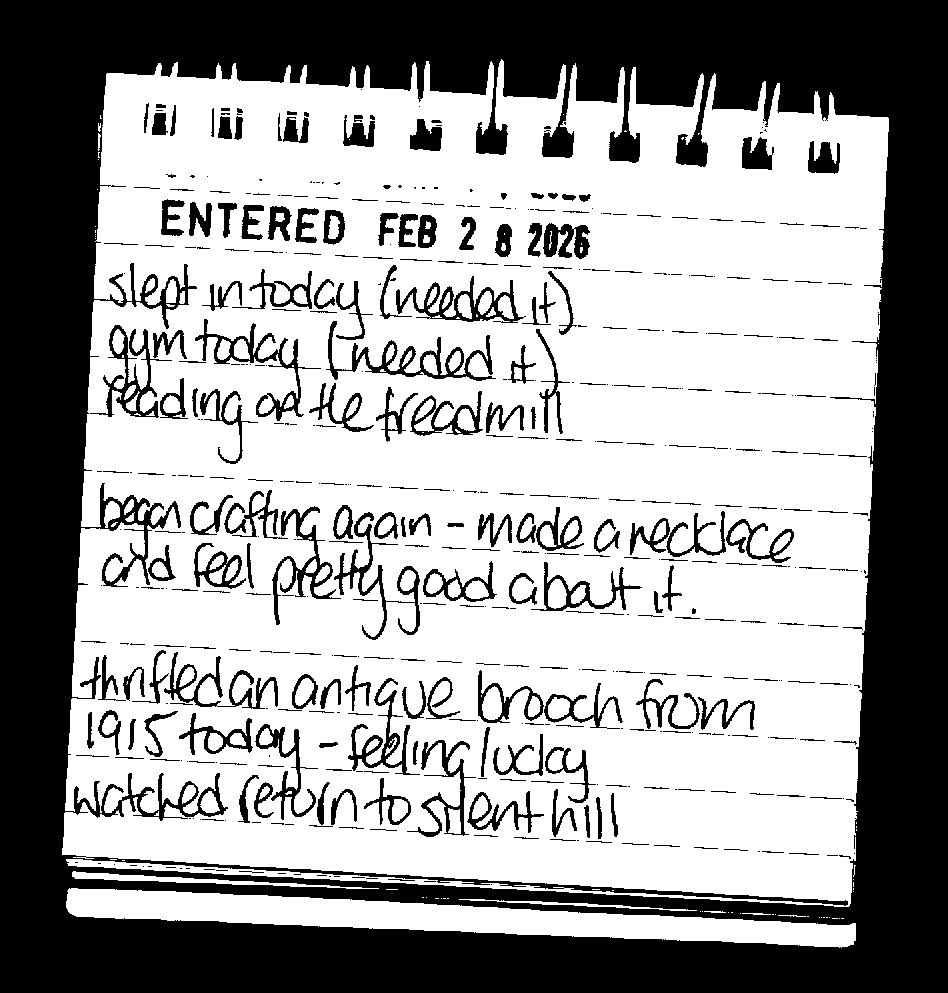 ENTERED FEB 2 8 2026
slept in today (needed it)
gym today (needed it)
reading on the treadmill
began crafting again - made a necklace
and feel pretty good about it.
thrifted an antique brooch from
1915 today - feeling lucky
watched return to silent hill